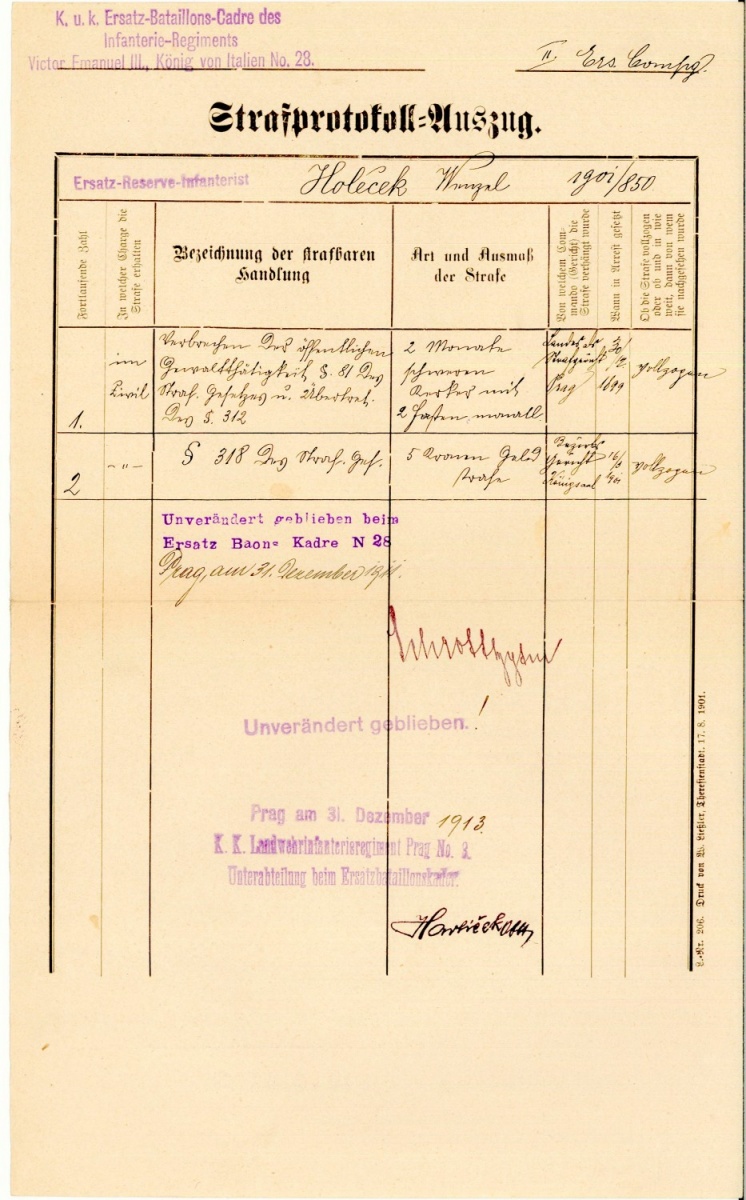 K. u. k. Ersatz-Bataillons-Cadre des
Infanterie-Regiments
Victor Emanuel III., König von Italien No. 28.
II. Ers. Compg.
Strafprotokoll-Auszug.
Ersatz-Reserve-Infanterist Holeček Wenzel 1901/850
Fortlaufende Zahl
In welcher Charge die
Strafe erhalten
Bezeichnung der strafbaren
Handlung
Art und Ausmaß
der Strafe
Von welchem Com-
mando (Gericht) die
Strafe verhängt wurde
Wann in Arrest gesetzt
Ob die Strafe vollzogen
oder ob und in wie
weit, dann von wem
sie nachgesehen wurde
1.
im
Civil
Verbrechen des öffentlichen
Gewaltthätigkeit §. 81 des
Straf. Gesetzes u. Übertret.
des §. 312
2 Monate
schweren
Kerker mit
2 Fasten monatl.
Landes als
Strafgericht
Prag
1899
vollzogen
2
- " -
§ 318 des Straf. Ges.
5 Kronen Geld
strafe
Bezirks
Gericht
Königsaal
vollzogen
Unverändert geblieben beim
Ersatz Baons Kadre N 28
Prag, am 31. Dezember 1911.
Unverändert geblieben.!
Prag am 31. Dezember 1913.
K. K. Landwehrinfanterieregiment Prag No. 8.
Unterabteilung beim Ersatzbataillonskader.
L.-Nr. 206. Druck von W. Ließler, Theresienstadt. 17. 8. 1901.